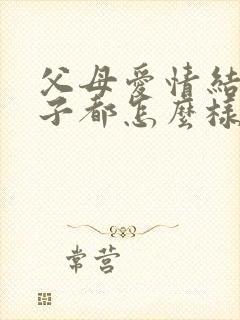 父母愛情結
子都怎麼樣
常营